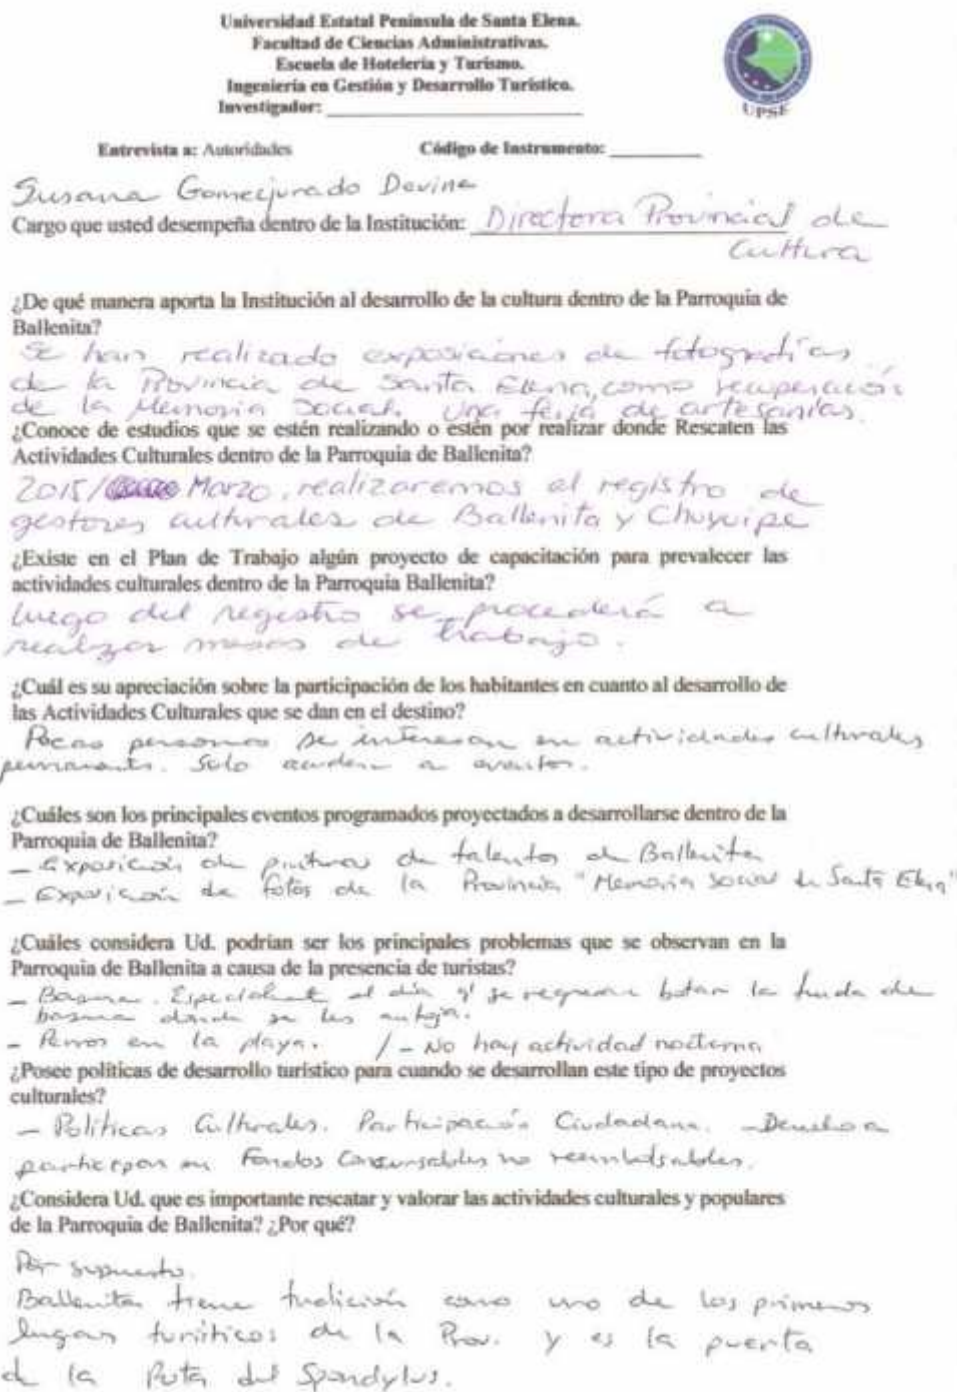 Universidad Estatal Península de Santa Elena.
Facultad de Ciencias Administrativas.
Escuela de Hotelería y Turismo.
Ingeniería en Gestión y Desarrollo Turístico.
Investigador: ____________________
UPSE
Entrevista a: Autoridades Código de Instrumento: __________
Susana Gomezjurado Devine
Cargo que usted desempeña dentro de la Institución: Directora Provincial de
Cultura
¿De qué manera aporta la Institución al desarrollo de la cultura dentro de la Parroquia de
Ballenita?
Se han realizado exposiciones de fotografías
de la Provincia de Santa Elena, como recuperación
de la Memoria Social. Una feria de artesanías.
¿Conoce de estudios que se estén realizando o estén por realizar donde Rescaten las
Actividades Culturales dentro de la Parroquia de Ballenita?
2015/ Marzo. realizaremos el registro de
gestores culturales de Ballenita y Chuyuipe
¿Existe en el Plan de Trabajo algún proyecto de capacitación para prevalecer las
actividades culturales dentro de la Parroquia Ballenita?
luego del registro se procederá a
realizar mesas de trabajo.
¿Cuál es su apreciación sobre la participación de los habitantes en cuanto al desarrollo de
las Actividades Culturales que se dan en el destino?
Pocas personas se interesan en actividades culturales
permanents. Solo acuden a eventos.
¿Cuáles son los principales eventos programados proyectados a desarrollarse dentro de la
Parroquia de Ballenita?
- Exposición de pinturas de talentos de Ballenita
- Exposición de fotos de la Provincia "Memoria social de Santa Elena"
¿Cuáles considera Ud. podrían ser los principales problemas que se observan en la
Parroquia de Ballenita a causa de la presencia de turistas?
- Basura. Especialment el día q' se regresan botan la funda de
basura donde se les antoja.
- Perros en la playa. / - No hay actividad nocturna
¿Posee políticas de desarrollo turístico para cuando se desarrollan este tipo de proyectos
culturales?
- Políticas Culturales. Participación Ciudadana. - Derecho a
participar en Fondos Concursables no reembolsables.
¿Considera Ud. que es importante rescatar y valorar las actividades culturales y populares
de la Parroquia de Ballenita? ¿Por qué?
Por supuesto.
Ballenita tiene tradición como uno de los primeros
lugares turísticos de la Prov. y es la puerta
de la Ruta del Spondylus.